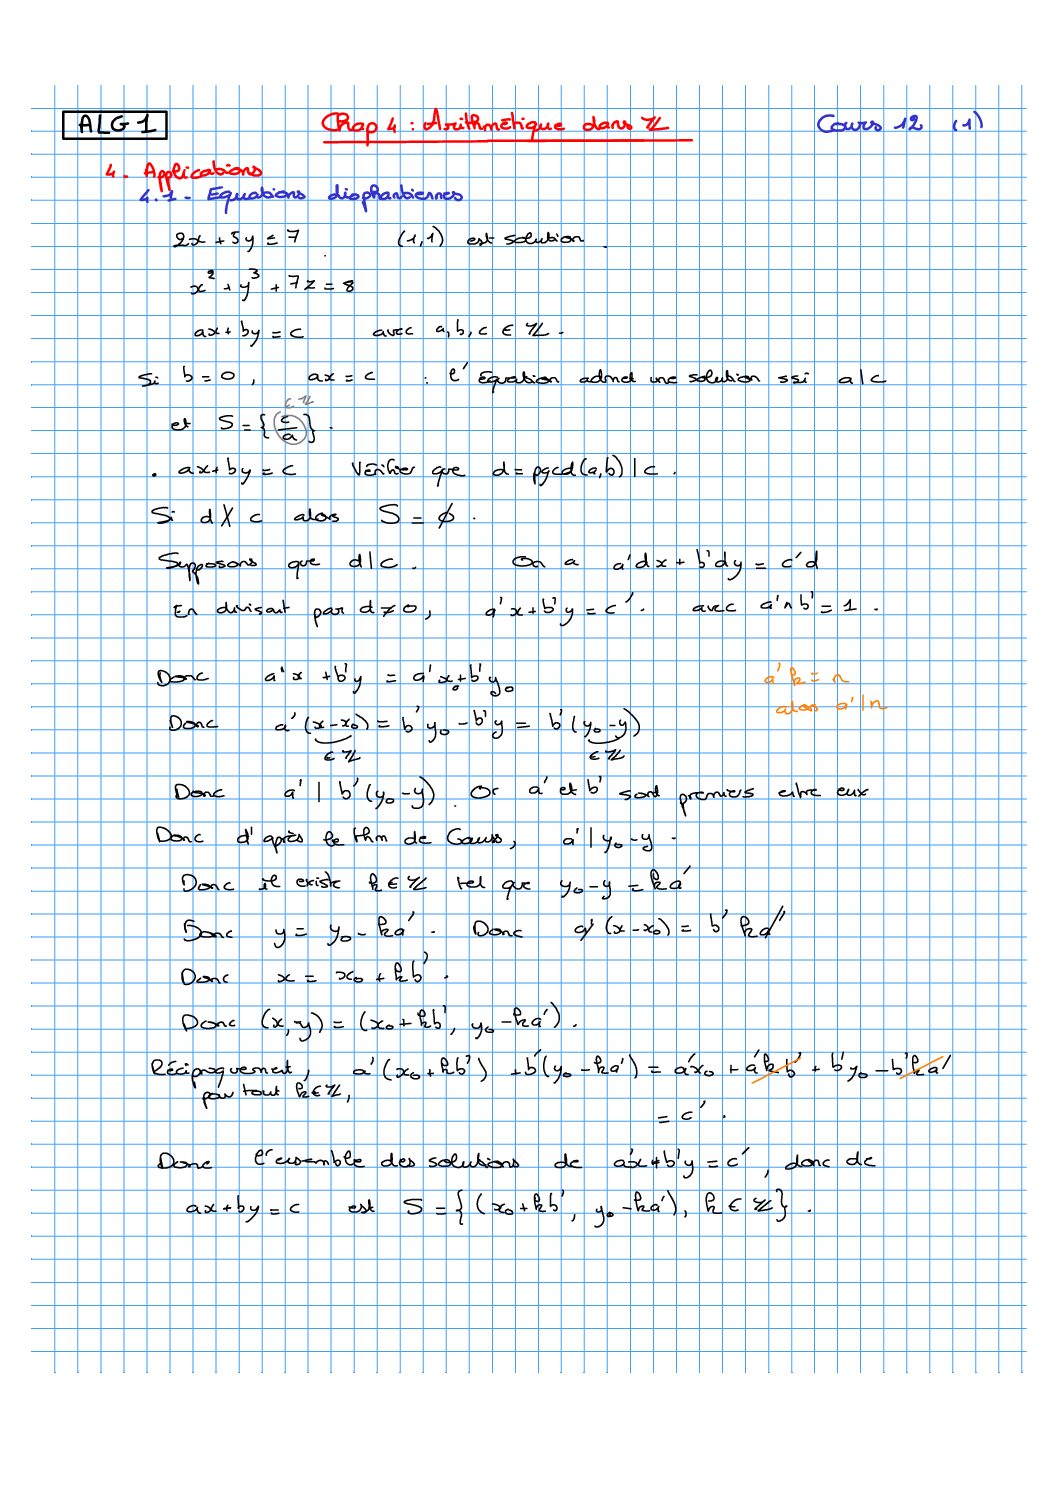 ALG 1 Chap 4 : Arithmétique dans ℤ Cours 12 (1)
4. Applications
4.1 - Equations diophantiennes
2x + 5y = 7 (1,1) est solution.
x² + y³ + 7z = 8
ax + by = c avec a, b, c ∈ ℤ.
Si b = 0, ax = c : l'équation admet une solution ssi a | c
∈ ℤ
et S = { c/a }.
. ax + by = c Vérifier que d = pgcd(a,b) | c.
Si d ∤ c alors S = ∅.
Supposons que d | c. On a a'dx + b'dy = c'd
En divisant par d ≠ 0, a'x + b'y = c'. avec a' ∧ b' = 1.
Donc a'x + b'y = a'x₀ + b'y₀
a'k = n
alors a' | n
Donc a'(x - x₀) = b'y₀ - b'y = b'(y₀ - y)
∈ ℤ ∈ ℤ
Donc a' | b'(y₀ - y). Or a' et b' sont premiers entre eux
Donc d'après le thm de Gauss, a' | y₀ - y.
Donc il existe k ∈ ℤ tel que y₀ - y = ka'
Donc y = y₀ - ka'. Donc a'(x - x₀) = b'ka'
Donc x = x₀ + kb'.
Donc (x, y) = (x₀ + kb', y₀ - ka').
Réciproquement, a'(x₀ + kb') + b'(y₀ - ka') = a'x₀ + a'kb' + b'y₀ - b'ka'
pour tout k ∈ ℤ,
= c'.
Donc l'ensemble des solutions de a'x + b'y = c', donc de
ax + by = c est S = { (x₀ + kb', y₀ - ka'), k ∈ ℤ }.